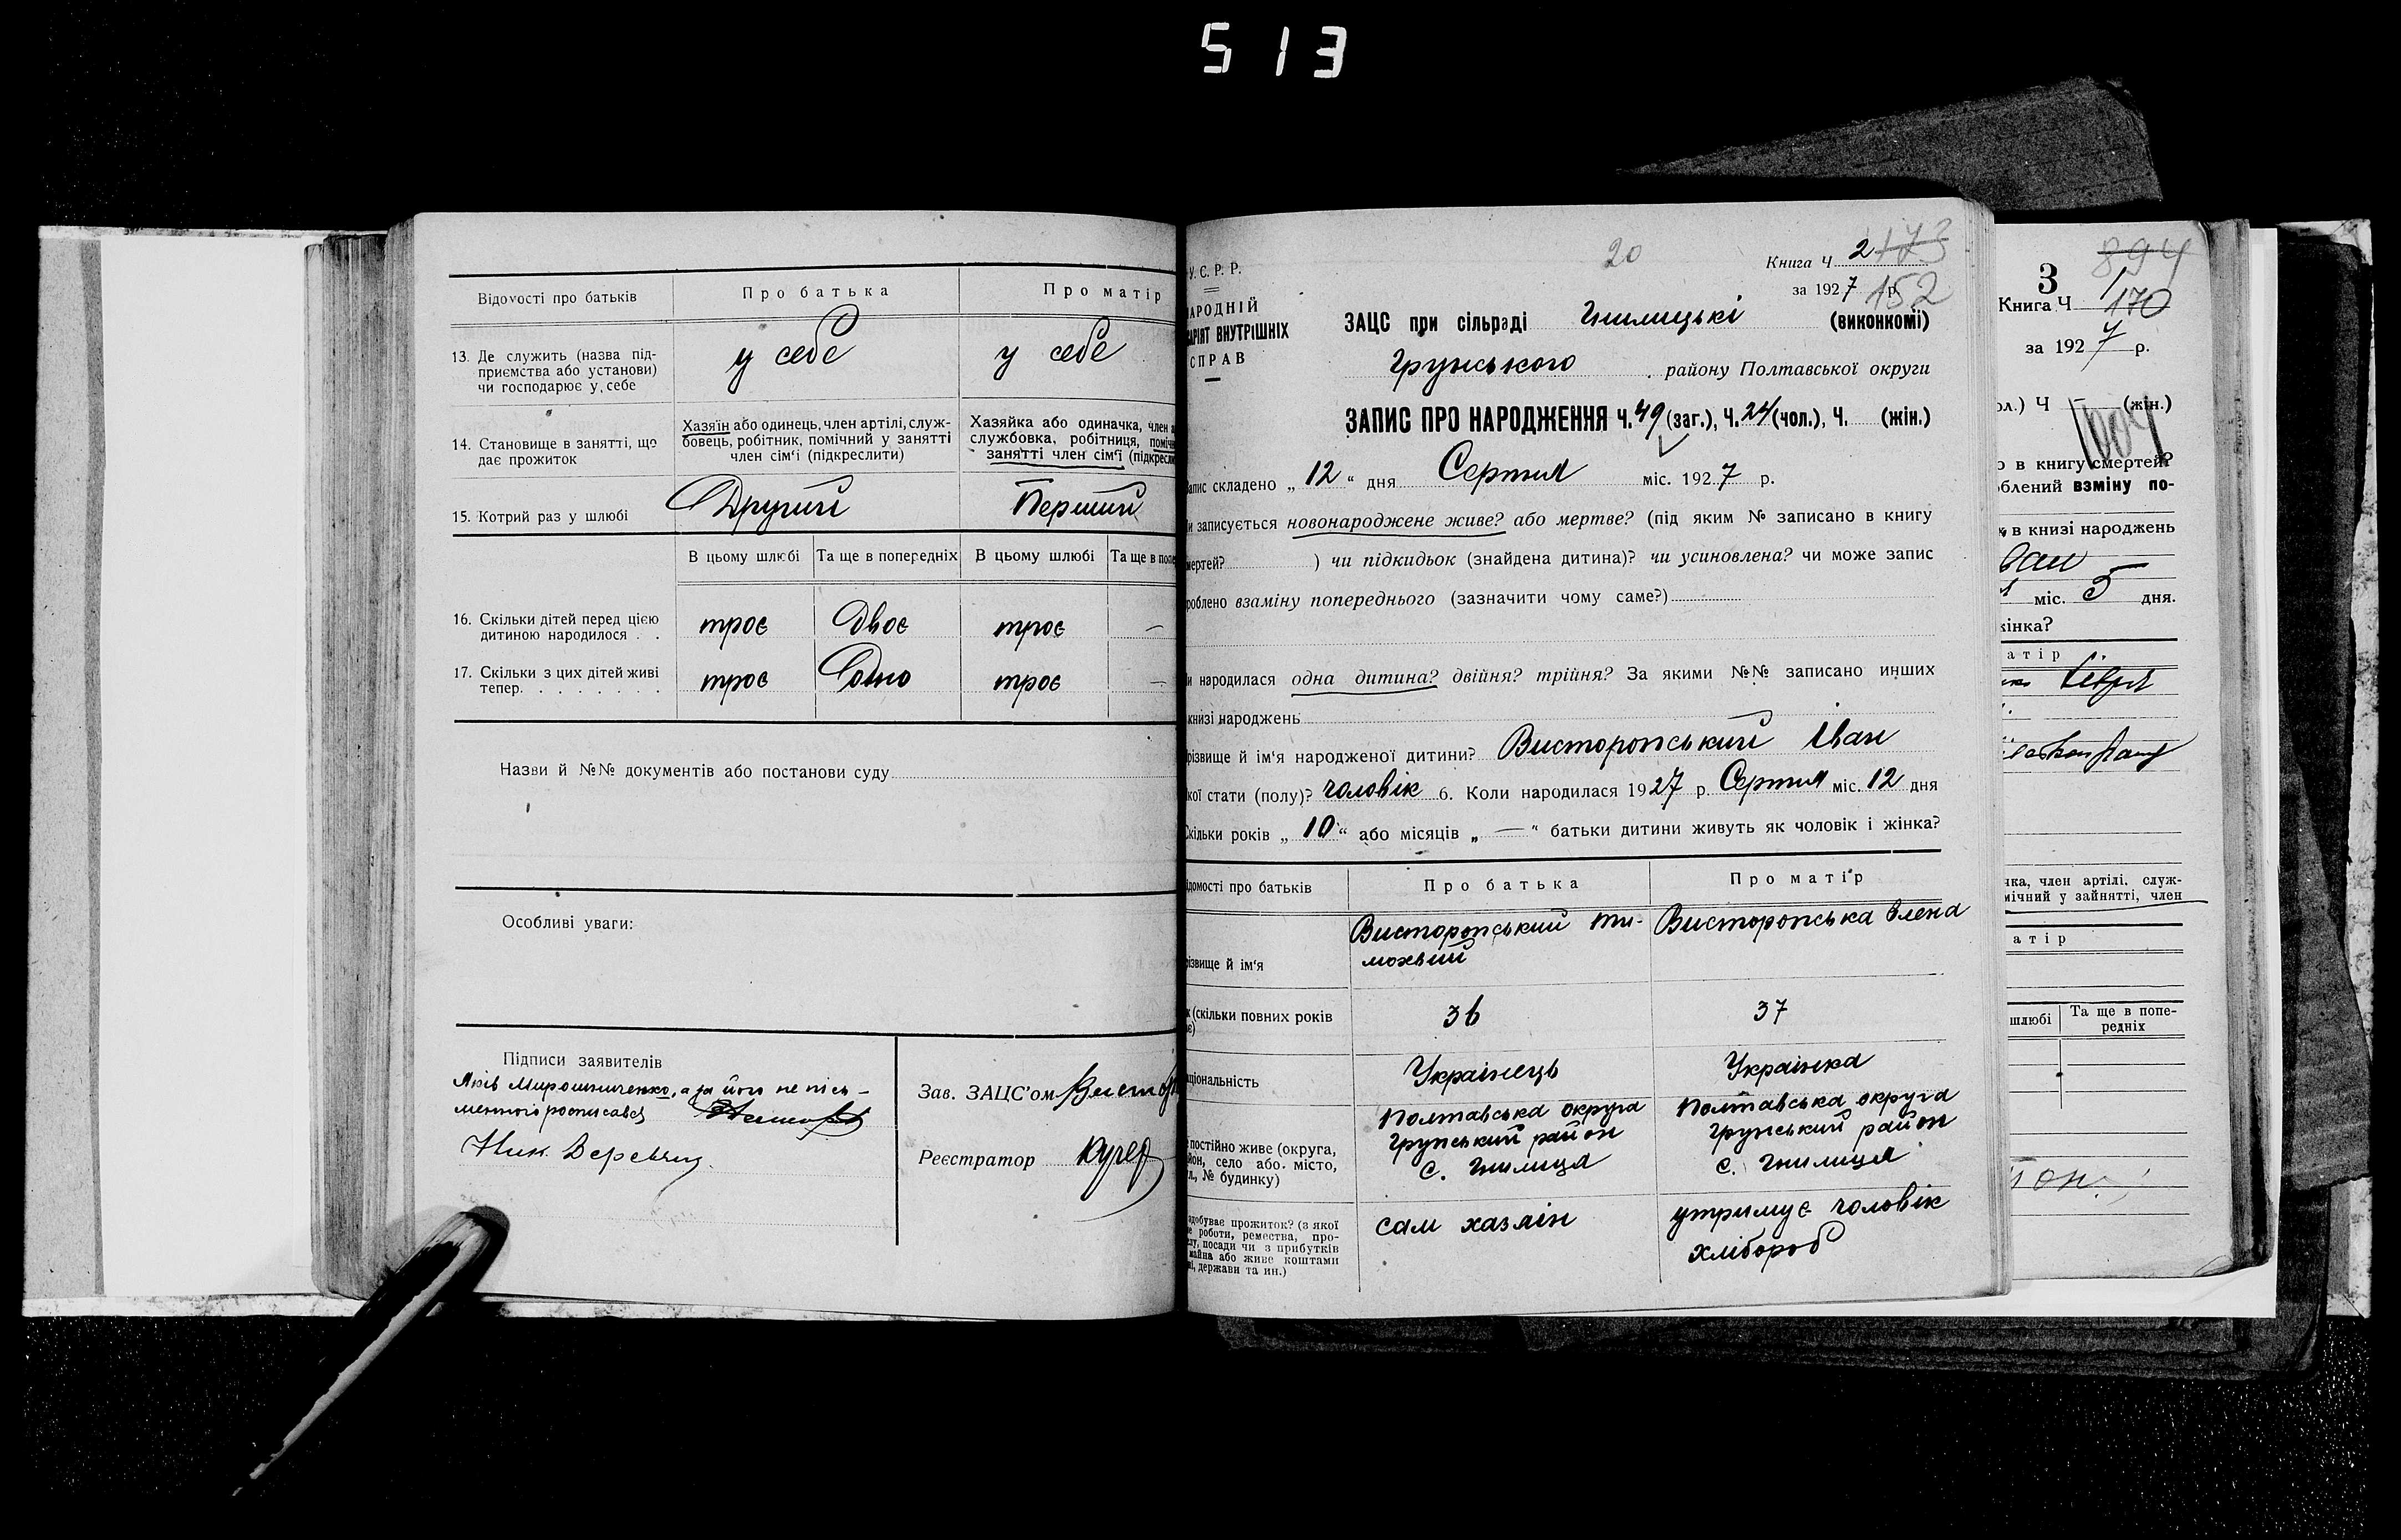 513
Відомості про батьків
Про батька
Про матір
13. Де служить (назва під-
приємства або установи)
чи господарює у себе
у себе
у себе
14. Становище в занятті, що
дає прожиток
Хазяїн або одинець, член артілі, служ-
бовець, робітник, помічний у занятті
член сім'ї (підкреслити)
Хазяйка або одиначка, член
службовка, робітниця,
занятті член сім'ї
15. Котрий раз у шлюбі
Другий
Перший
В цьому шлюбі
Та ще в попередніх
В цьому шлюбі
Та ще в
16. Скільки дітей перед цією
дитиною народилося . .
троє
Двоє
троє
—
17. Скільки з цих дітей живі
тепер. . . . . . . .
троє
Одно
троє
—
Назви й №№ документів або постанови суду
Особливі уваги:
Підписи заявителів
Яків Мирошниченко, а за його не пісь-
менного росписався
Зав. ЗАЦС'ом
Реєстратор
У. С. Р. Р.
ВНУТРІШНІХ
СПРАВ
20
Книга Ч 2 173
за 1927 р. 152
ЗАЦС при сільраді Гнилицькі (виконкомі)
Грунського району Полтавської округи
ЗАПИС ПРО НАРОДЖЕННЯ Ч. 49 (заг.), Ч. 24 (чол.), Ч. (жін.)
складено „ 12 " дня Серпня міс. 1927 р.
записується новонароджене живе? або мертве? (під яким № записано в книгу
) чи підкидьок (знайдена дитина)? чи усиновлена? чи може запис
взаміну попереднього (зазначити чому саме?)
народилася одна дитина? двійня? трійня? За якими №№ записано инших
книзі народжень
й ім'я народженої дитини? Висторопський Іван
стати (полу)? чоловік 6. Коли народилася 1927 р. Серпня міс. 12 дня
років „ 10 " або місяців „ — " батьки дитини живуть як чоловік і жінка?
про батьків
Про батька
Про матір
й ім'я
Висторопський Ти-
мохвий
Висторопська Влена
(скільки повних років
36
37
Українець
Українка
постійно живе (округа,
село або місто,
№ будинку)
Полтавська округа
Грунський район
с. Гнилиця
Полтавська округа
Грунський район
с. Гнилиця
прожиток? (з якої
роботи, ремества, про-
посади чи з прибутків
майна або живе коштами
держави та ин.)
сам хазяїн
утримує чоловік
хлібороб
894
3
1
Книга Ч 170
за 1927 р.
Ч — (жін.)
1004
в книгу смертей?
взміну по-
в книзі народжень
міс. 5 дня.
член артілі, служ-
у зайнятті, член
шлюбі
Та ще в попе-
редніх